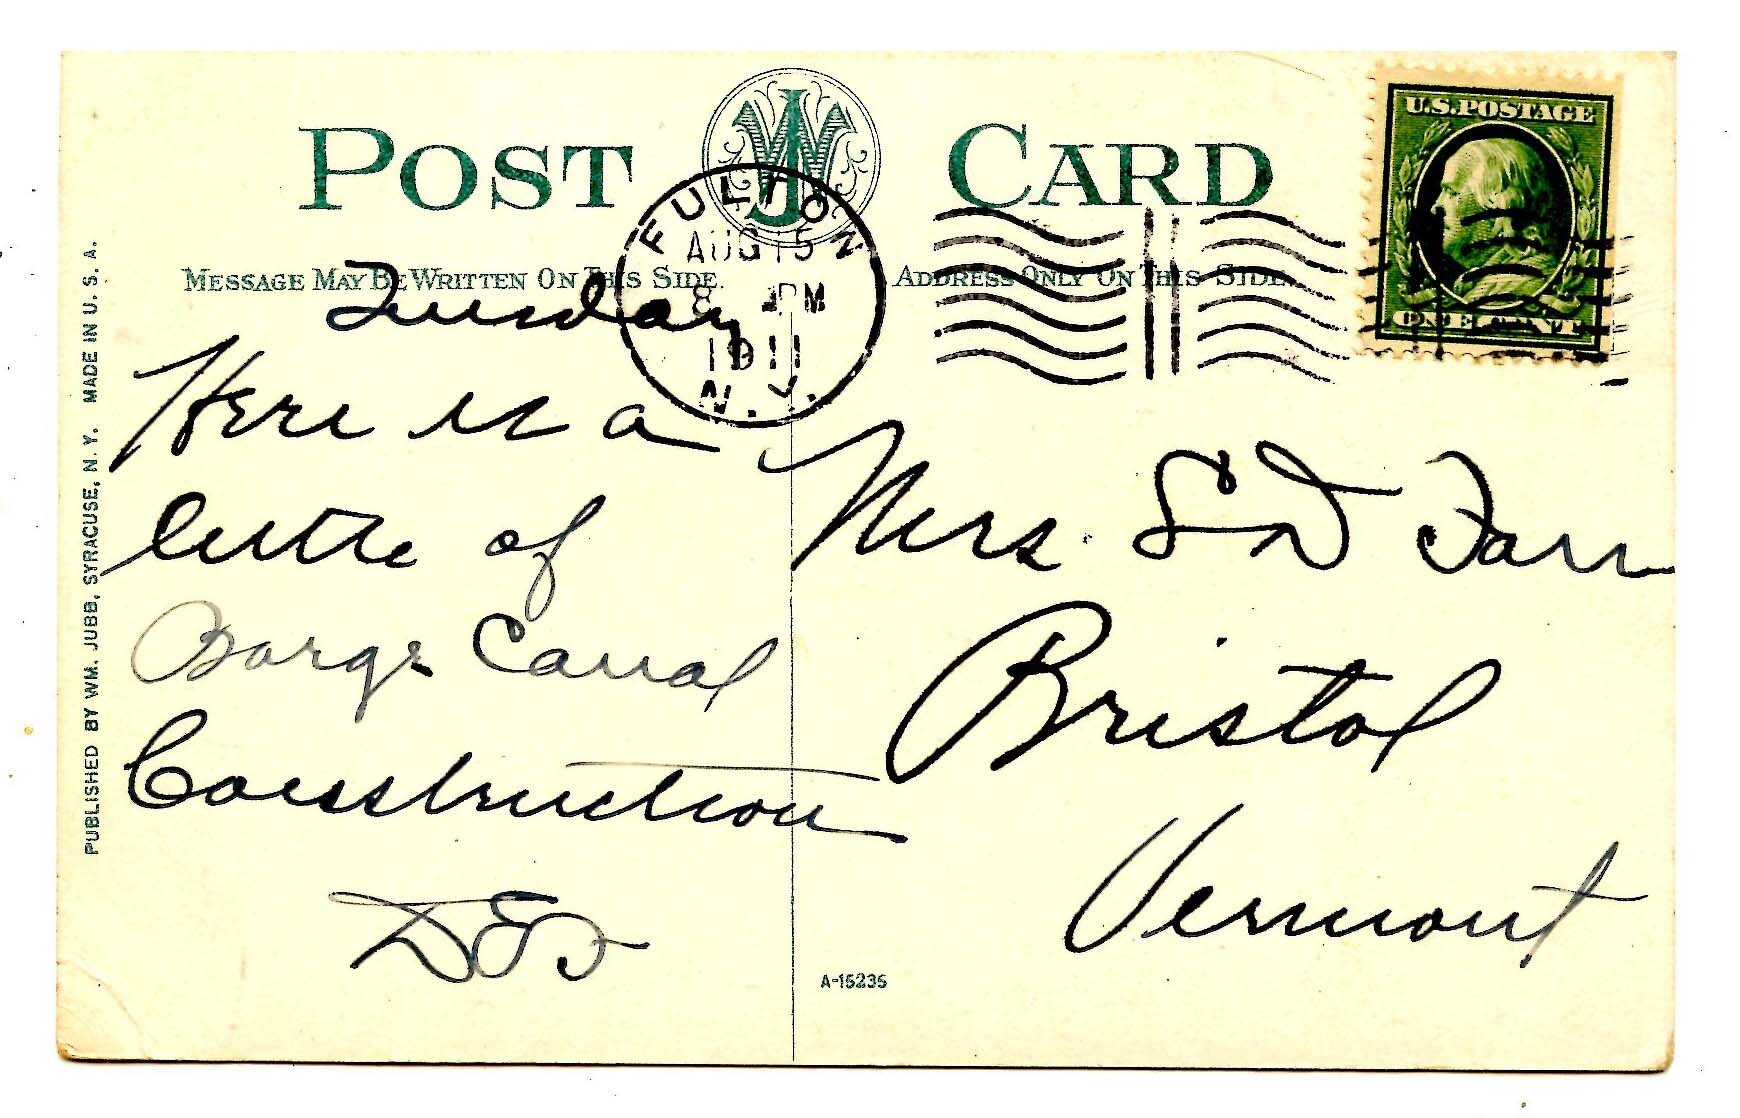 POST CARD
U.S. POSTAGE
ONE CENT
FULTON
AUG 15
8 PM
1911
N.Y.
MESSAGE MAY BE WRITTEN ON THIS SIDE.
ADDRESS ONLY ON THIS SIDE.
PUBLISHED BY WM. JUBB, SYRACUSE, N. Y. MADE IN U. S. A.
Tuesday
Here is a
little of
Barge Canal
Construction
Mrs. S D Farr
Bristol
Vermont
A-15235